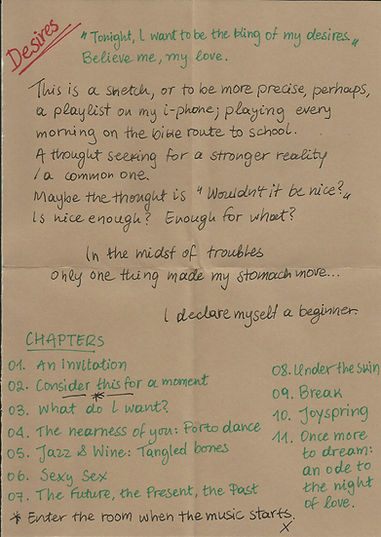 Desires
"Tonight, I want to be the bling of my desires."
Believe me, my love.
This is a sketch, or to be more precise, perhaps,
a playlist on my i-phone; playing every
morning on the bike route to school.
A thought seeking for a stronger reality
/a common one.
Maybe the thought is "Wouldn't it be nice?"
Is nice enough? Enough for what?
In the midst of troubles
only one thing made my stomach move...
I declare myself a beginner.
CHAPTERS
01. An invitation
02. Consider this for a moment
*
03. What do I want?
04. The nearness of you: Porto dance
05. Jazz & Wine: Tangled bones
06. Sexy Sex
07. The Future, the Present, the Past
08. Under the skin
09. Break
10. Joyspring
11. Once more
to dream:
an ode to
the night
of love.
* Enter the room when the music starts.
x